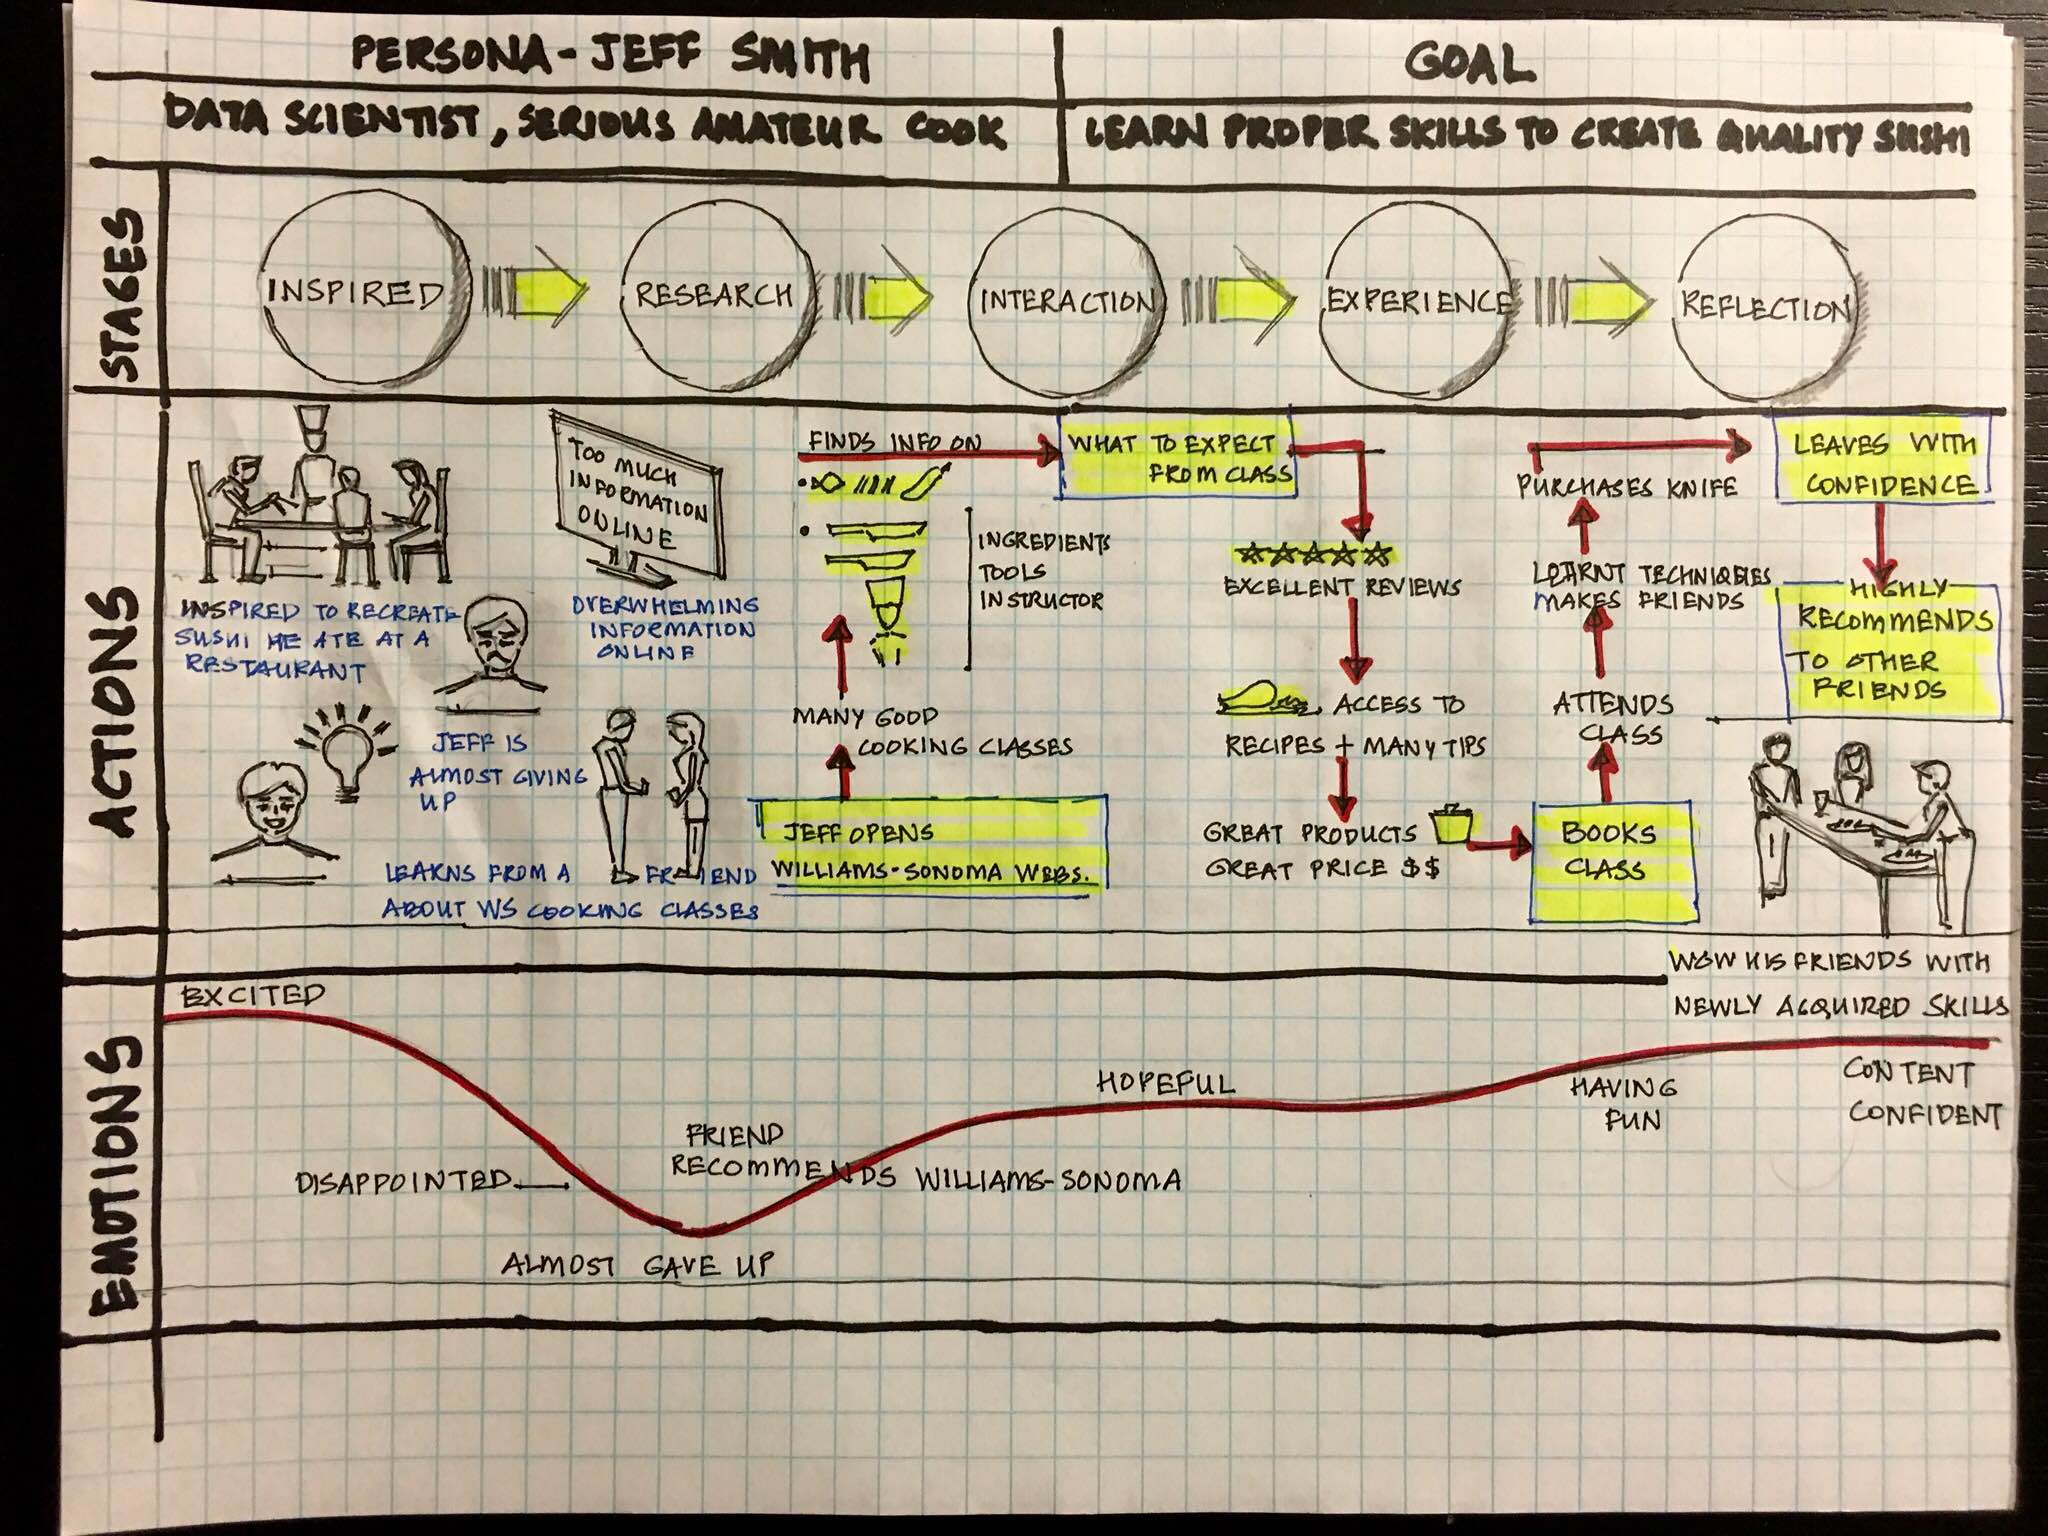 PERSONA - JEFF SMITH
GOAL
DATA SCIENTIST, SERIOUS AMATEUR COOK
LEARN PROPER SKILLS TO CREATE QUALITY SUSHI
STAGES
INSPIRED
RESEARCH
INTERACTION
EXPERIENCE
REFLECTION
ACTIONS
INSPIRED TO RECREATE
SUSHI HE ATE AT A
RESTAURANT
TOO MUCH
INFORMATION
ONLINE
OVERWHELMING
INFORMATION
ONLINE
JEFF IS
ALMOST GIVING
UP
LEARNS FROM A FRIEND
ABOUT WS COOKING CLASSES
JEFF OPENS
WILLIAMS-SONOMA WEBS.
MANY GOOD
COOKING CLASSES
INGREDIENTS
TOOLS
INSTRUCTOR
FINDS INFO ON
WHAT TO EXPECT
FROM CLASS
EXCELLENT REVIEWS
ACCESS TO
RECIPES + MANY TIPS
GREAT PRODUCTS
GREAT PRICE $$
BOOKS
CLASS
ATTENDS
CLASS
LEARNT TECHNIQUES
MAKES FRIENDS
PURCHASES KNIFE
LEAVES WITH
CONFIDENCE
HIGHLY
RECOMMENDS
TO OTHER
FRIENDS
WOW HIS FRIENDS WITH
NEWLY ACQUIRED SKILLS
EMOTIONS
EXCITED
DISAPPOINTED
ALMOST GAVE UP
FRIEND
RECOMMENDS WILLIAMS-SONOMA
HOPEFUL
HAVING
FUN
CONTENT
CONFIDENT